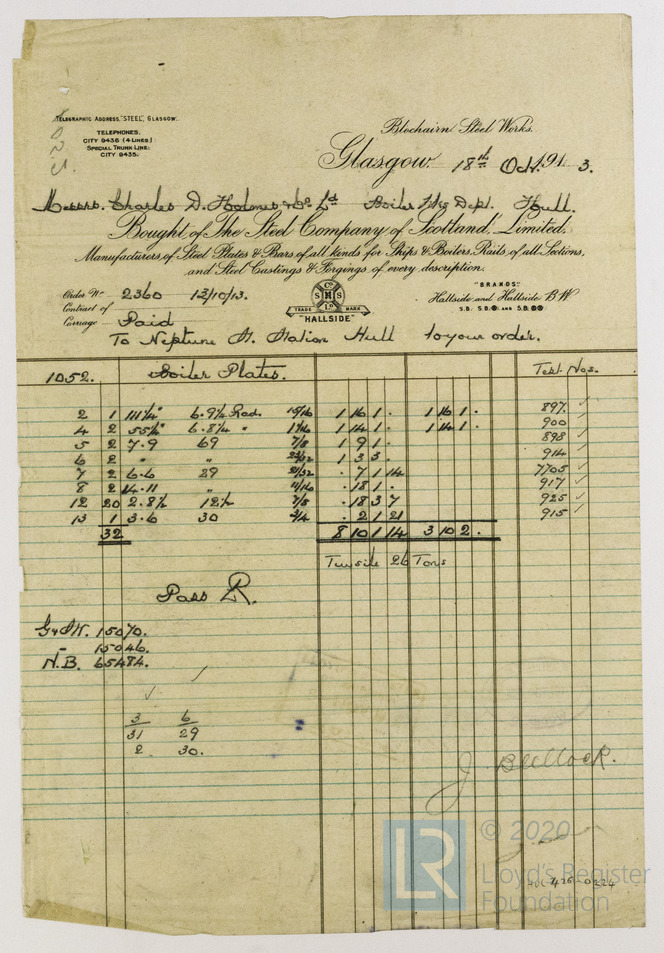 TELEGRAPHIC ADDRESS, "STEEL", GLASGOW.
TELEPHONES.
CITY 9436 (4 LINES)
SPECIAL TRUNK LINE:
CITY 9435.
Blochairn Steel Works.
Glasgow. 18th Oct. 191 3.
Messrs. Charles D. Holmes & Co Ld Boiler Wks Dept. Hull.
Bought of The Steel Company of Scotland, Limited,
Manufacturers of Steel Plates & Bars of all kinds for Ships & Boilers, Rails of all Sections,
and Steel Castings & Forgings of every description.
Order No 2360 13/10/13.
Contract of
Carriage Paid
Co S H S Ld
TRADE MARK
"HALLSIDE"
"BRANDS"
Hallside and Hallside BW
To Neptune St. Station Hull to your order.
1052. Boiler Plates. Test Nos.
2 1 111¼" 6.9½ Rad. 15/16 1 16 1 . 1 16 1 . 897. ✓
4 2 55¼" 6.8¼ " 1 14 1 . 1 14 1 . 900 ✓
5 2 7.9 69 7/8 1 9 1 . 898 ✓
6 2 " " 23/32 1 3 5 . 914 ✓
7 2 6.6 29 21/32 . 7 1 14 7705 ✓
8 2 14.11 " 11/16 . 18 1 . 917 ✓
12 20 2.8½ 12½ 7/8 . 18 3 7 925 ✓
13 1 3.6 30 3/4 . 2 1 21 915 ✓
32 8 10 1 14 3 10 2 .
Tensile 26 Tons
Pass R.
G&SW. 15070.
15046.
N.B. 65484.
3 6
31 29
2 30.
J. Bullock.
LR
© 2020
Lloyd's Register
Foundation